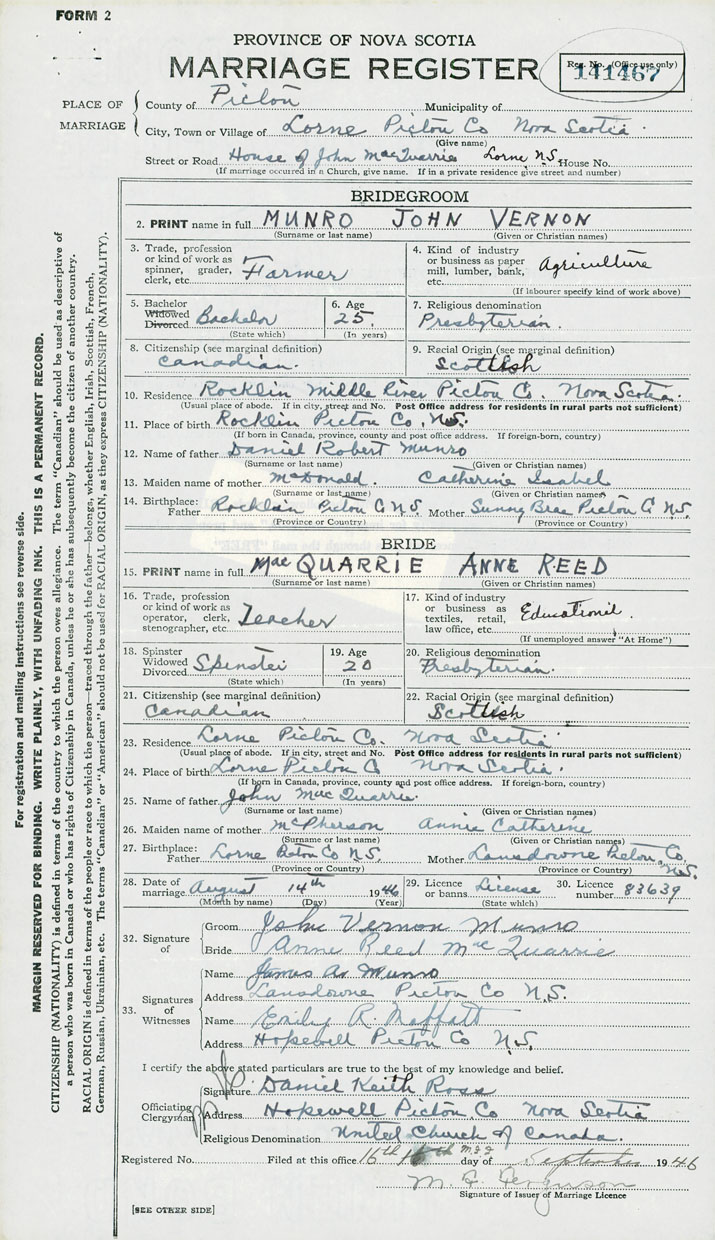 FORM 2
PROVINCE OF NOVA SCOTIA
MARRIAGE REGISTER
Reg. No. (Office use only)
141467
PLACE OF MARRIAGE
County of Pictou Municipality of
City, Town or Village of Lorne Pictou Co Nova Scotia.
(Give name)
Street or Road House of John MacQuarrie Lorne N.S. House No.
(If marriage occurred in a Church, give name. If in a private residence give street and number)
BRIDEGROOM
2. PRINT name in full MUNRO JOHN VERNON
(Surname or last name) (Given or Christian names)
3. Trade, profession or kind of work as spinner, grader, clerk, etc. Farmer
4. Kind of industry or business as paper mill, lumber, bank, etc. Agriculture
(If labourer specify kind of work above)
5. Bachelor Widowed Divorced Bachelor
(State which)
6. Age 25.
(In years)
7. Religious denomination
Presbyterian.
8. Citizenship (see marginal definition)
Canadian.
9. Racial Origin (see marginal definition)
Scottish
10. Residence Rocklin Middle River Pictou Co. Nova Scotia.
(Usual place of abode. If in city, street and No. Post Office address for residents in rural parts not sufficient)
11. Place of birth Rocklin Pictou Co, N.S.
(If born in Canada, province, county and post office address. If foreign-born, country)
12. Name of father Daniel Robert Munro
(Surname or last name) (Given or Christian names)
13. Maiden name of mother McDonald. Catherine Isabel
(Surname or last name) (Given or Christian names)
14. Birthplace: Father Rocklin Pictou Co N.S. Mother Sunny Brae Pictou Co N.S.
(Province or Country) (Province or Country)
BRIDE
15. PRINT name in full MacQUARRIE ANNE REED
(Surname or last name) (Given or Christian names)
16. Trade, profession or kind of work as operator, clerk, stenographer, etc. Teacher
17. Kind of industry or business as textiles, retail, law office, etc. Educational.
(If unemployed answer "At Home")
18. Spinster Widowed Divorced Spinster
(State which)
19. Age
20
(In years)
20. Religious denomination
Presbyterian.
21. Citizenship (see marginal definition)
Canadian
22. Racial Origin (see marginal definition)
Scottish
23. Residence Lorne Pictou Co. Nova Scotia
(Usual place of abode. If in city, street and No. Post Office address for residents in rural parts not sufficient)
24. Place of birth Lorne Pictou Co Nova Scotia.
(If born in Canada, province, county and post office address. If foreign-born, country)
25. Name of father John MacQuarrie.
(Surname or last name) (Given or Christian names)
26. Maiden name of mother McPherson Annie Catherine
(Surname or last name) (Given or Christian names)
27. Birthplace: Father Lorne Pictou Co N.S. Mother Lansdowne Pictou Co, N.S.
(Province or Country) (Province or Country)
28. Date of marriage August 14th 1946
(Month by name) (Day) (Year)
29. Licence or banns License
(State which)
30. Licence number 83639
32. Signature of
Groom John Vernon Munro
Bride Anne Reed MacQuarrie
33. Signatures of Witnesses
Name James A. Munro
Address Lansdowne Pictou Co N.S.
Name Emily R. Moffatt
Address Hopewell Pictou Co N.S.
I certify the above stated particulars are true to the best of my knowledge and belief.
Officiating Clergyman
Signature Daniel Keith Ross
Address Hopewell Pictou Co Nova Scotia
Religious Denomination United Church of Canada.
Registered No. Filed at this office 16th day of September 1946
M. G. Ferguson
Signature of Issuer of Marriage Licence
[SEE OTHER SIDE]
For registration and mailing instructions see reverse side.
MARGIN RESERVED FOR BINDING. WRITE PLAINLY, WITH UNFADING INK. THIS IS A PERMANENT RECORD.
CITIZENSHIP (NATIONALITY) is defined in terms of the country to which the person owes allegiance. The term "Canadian" should be used as descriptive of
a person who was born in Canada or who has rights of Citizenship in Canada, unless he or she has subsequently become the citizen of another country.
RACIAL ORIGIN is defined in terms of the people or race to which the person—traced through the father—belongs, whether English, Irish, Scottish, French,
German, Russian, Ukrainian, etc. The terms "Canadian" or "American" should not be used for RACIAL ORIGIN, as they express CITIZENSHIP (NATIONALITY).